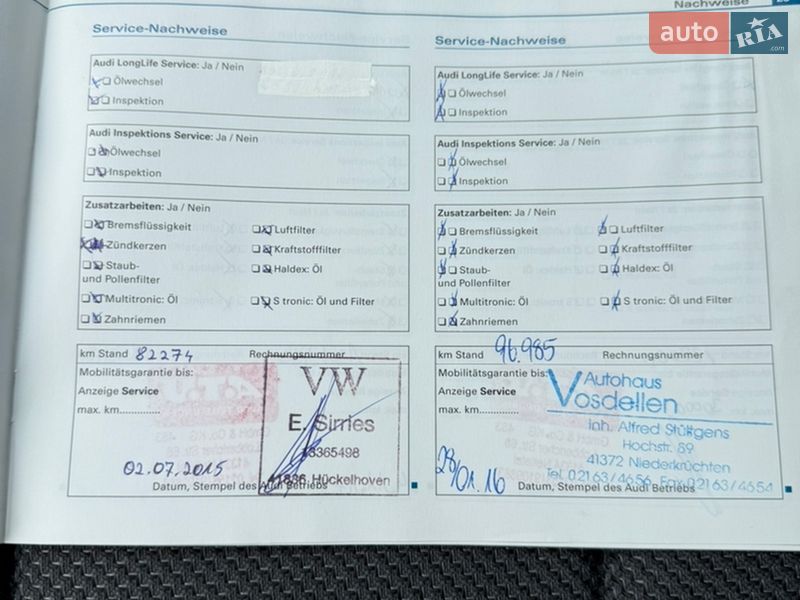 Nachweise
auto RIA .com
Service-Nachweise
Audi LongLife Service: Ja / Nein
Ölwechsel
Inspektion
Audi Inspektions Service: Ja / Nein
Ölwechsel
Inspektion
Zusatzarbeiten: Ja / Nein
Bremsflüssigkeit
Luftfilter
Zündkerzen
Kraftstofffilter
Staub-
und Pollenfilter
Haldex: Öl
Multitronic: Öl
S tronic: Öl und Filter
Zahnriemen
km Stand 82274
Rechnungsnummer
Mobilitätsgarantie bis:
Anzeige Service
max. km
VW
E. Sirries
41836 Hückelhoven
02.07.2015
Datum, Stempel des Audi Betriebs
Service-Nachweise
Audi LongLife Service: Ja / Nein
Ölwechsel
Inspektion
Audi Inspektions Service: Ja / Nein
Ölwechsel
Inspektion
Zusatzarbeiten: Ja / Nein
Bremsflüssigkeit
Luftfilter
Zündkerzen
Kraftstofffilter
Staub-
und Pollenfilter
Haldex: Öl
Multitronic: Öl
S tronic: Öl und Filter
Zahnriemen
km Stand 96.985
Rechnungsnummer
Mobilitätsgarantie bis:
Anzeige Service
max. km
Autohaus
Vosdellen
Inh. Alfred Stüttgens
Hochstr. 89
41372 Niederkrüchten
Tel. 02163/4656, Fax 02163/4654
28/01.16
Datum, Stempel des Audi Betriebs